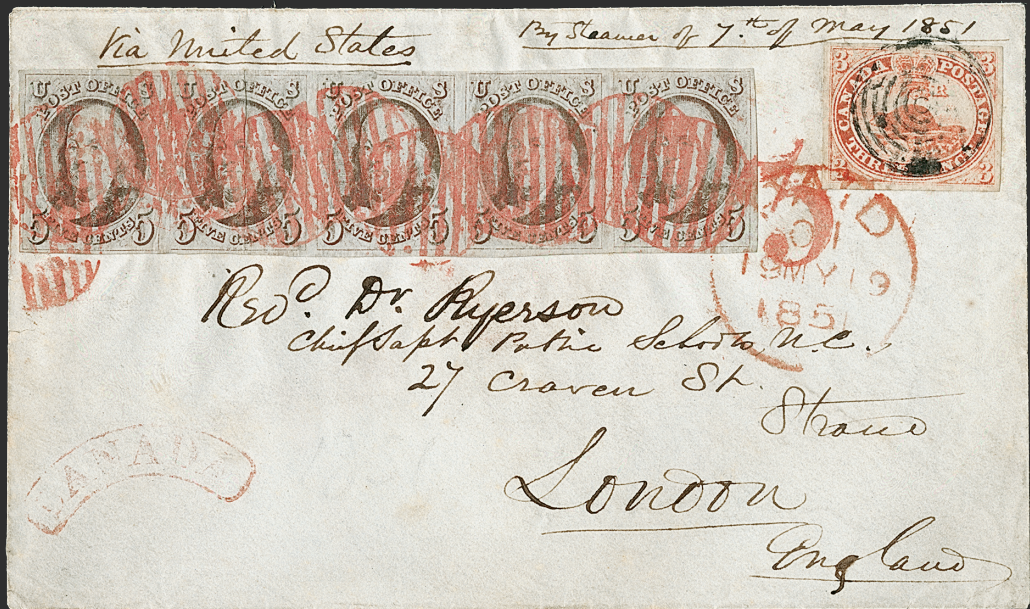 Via United States
By Steamer of 7th of May 1851
U S
POST OFFICE
FIVE CENTS
5 5
U S
POST OFFICE
FIVE CENTS
5 5
U S
POST OFFICE
FIVE CENTS
5 5
U S
POST OFFICE
FIVE CENTS
5 5
U S
POST OFFICE
FIVE CENTS
5 5
3 3
CANADA POSTAGE
3 3
PAID
19MY19
1851
Revd. Dr Ryerson
Chief Supt Public Schools U.C.
27 Craven St.
Strand
London
England
CANADA